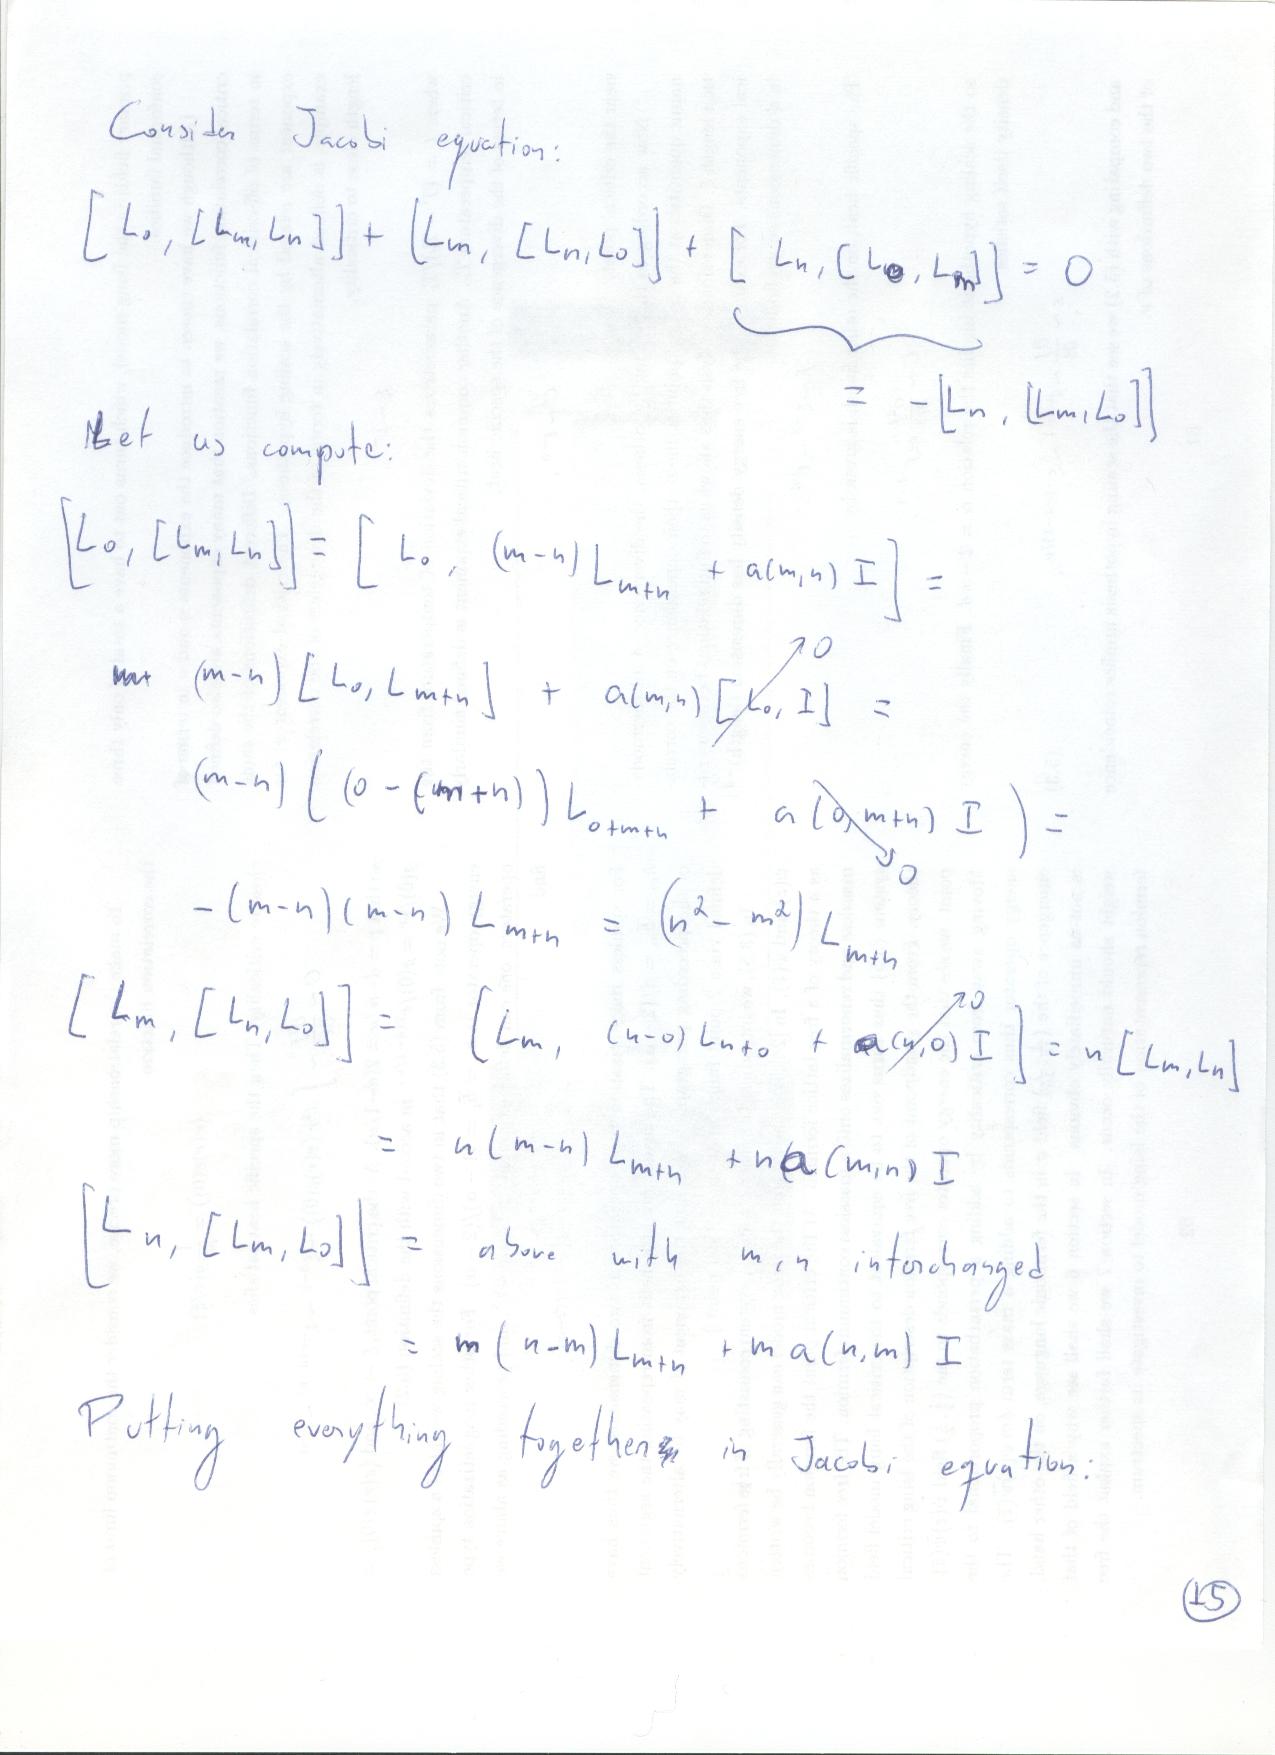 Consider Jacobi equation:
[L₀, [Lₘ, Lₙ]] + [Lₘ, [Lₙ, L₀]] + [Lₙ, [L₀, Lₘ]] = 0
= -[Lₙ, [Lₘ, L₀]]
Let us compute:
[L₀, [Lₘ, Lₙ]] = [L₀, (m-n) L_{m+n} + a(m,n) I] =
(m-n) [L₀, L_{m+n}] + a(m,n) [L₀, I] → 0 =
(m-n) ( (0 - (m+n)) L_{0+m+n} + a(0, m+n) I ) =
→ 0
-(m-n)(m-n) L_{m+n} = (n² - m²) L_{m+n}
[Lₘ, [Lₙ, L₀]] = [Lₘ, (n-0) L_{n+0} + a(n,0) I → 0] = n [Lₘ, Lₙ]
= n(m-n) L_{m+n} + n a(m,n) I
[Lₙ, [Lₘ, L₀]] = above with m,n interchanged
= m(n-m) L_{m+n} + m a(n,m) I
Putting everything together in Jacobi equation:
15